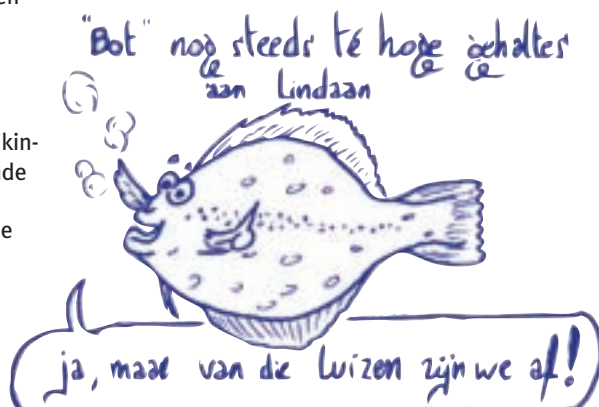 en
"Bot" nog steeds té hoge gehaltes
aan Lindaan
kin-
de
e
ja, maar van die luizen zijn we af!